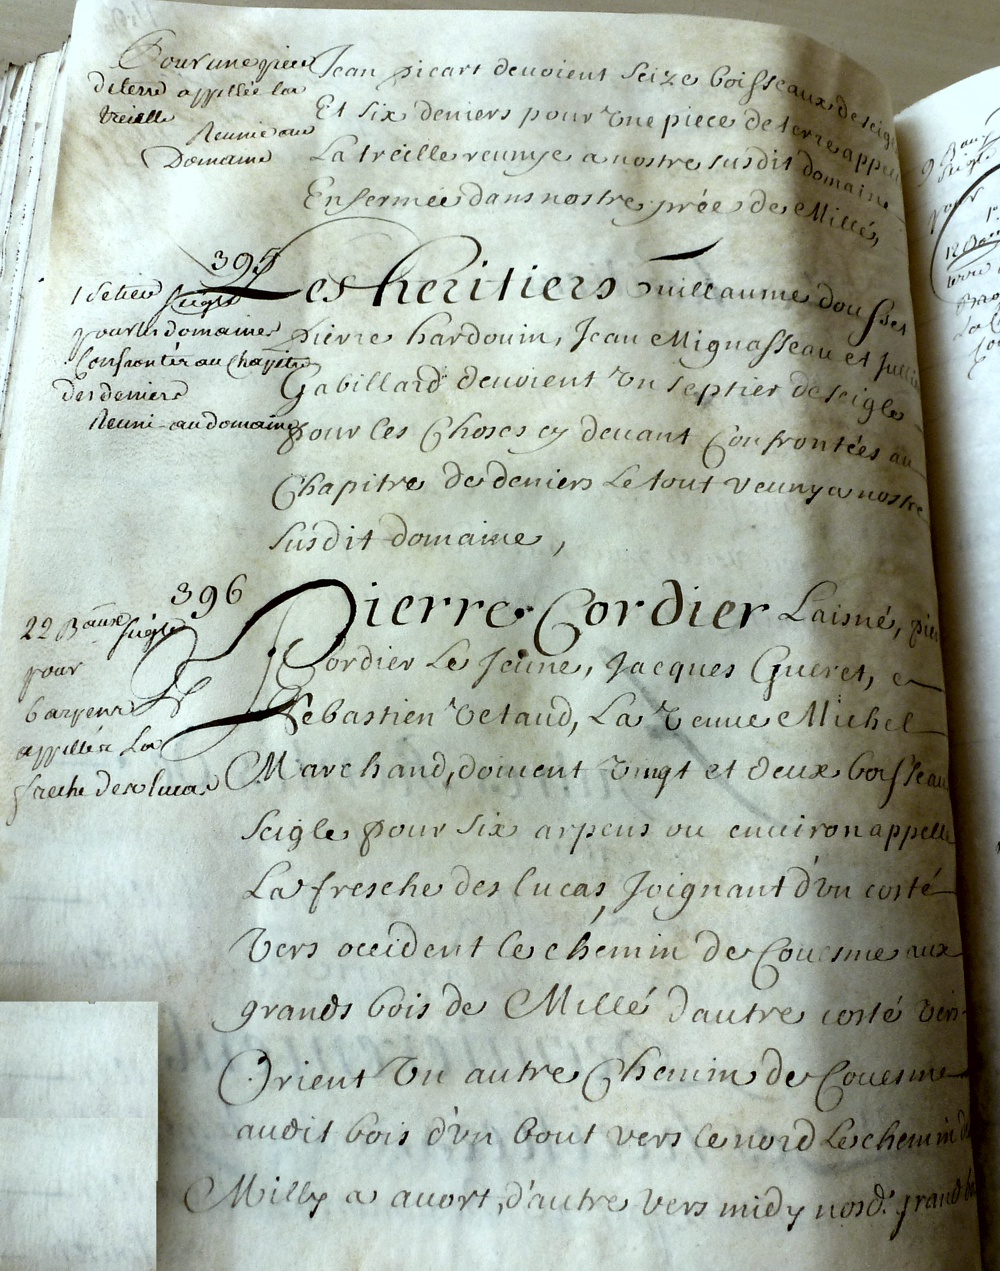 Pour une piece
de terre appellée la
treille
Reunie au
Domaine
Jean picart devoient seize boisseaux de seigle
Et six deniers pour une piece de terre appel
La treille reunye a nostre susdit domaine
Enfermée dans nostre prée de Millé,
395
1 Setier
seigle
pour les domaines
Confrontés au chapitre
des deniers
Reuni au domaine
Les heritiers Guillaume dousset
pierre hardouin, Jean Mignasseau et Julli
Gabillard devoient un septier de seigle
pour les Choses cy devant Confrontées au
Chapitre de deniers Le tout reuny a nostre
susdit domaine,
396
22 Baux seigle
pour
6 arpens
appellés La
freche des lucas
Pierre Cordier Laisné, pier
Cordier Le Jeune, Jacques Gueret, e
Sebastien Vetaud, La veuve Michel
Marchand, doivent vingt et deux boisseau
seigle pour six arpens ou environ appellé
La fresche des lucas, Joignant d'un costé
Vers occident le chemin de Couesme aux
grands bois de Millé d'autre costé vers
Orient un autre Chemin de Couesme
audit bois d'un bout vers le nord Le chemin de
Milly a avort, d'autre vers midy nosd. grand bo